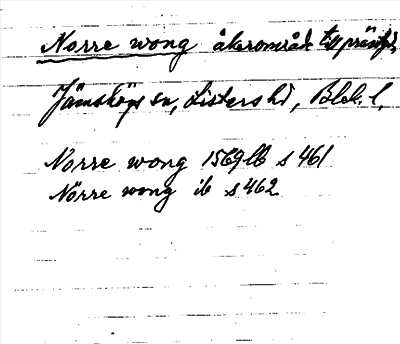 Norre wong åkerområde till prästg.
Jämshögs sn, Listers hd, Blek. l.
Norre wong 1569 lb s 461
Nörre wong ib s 462